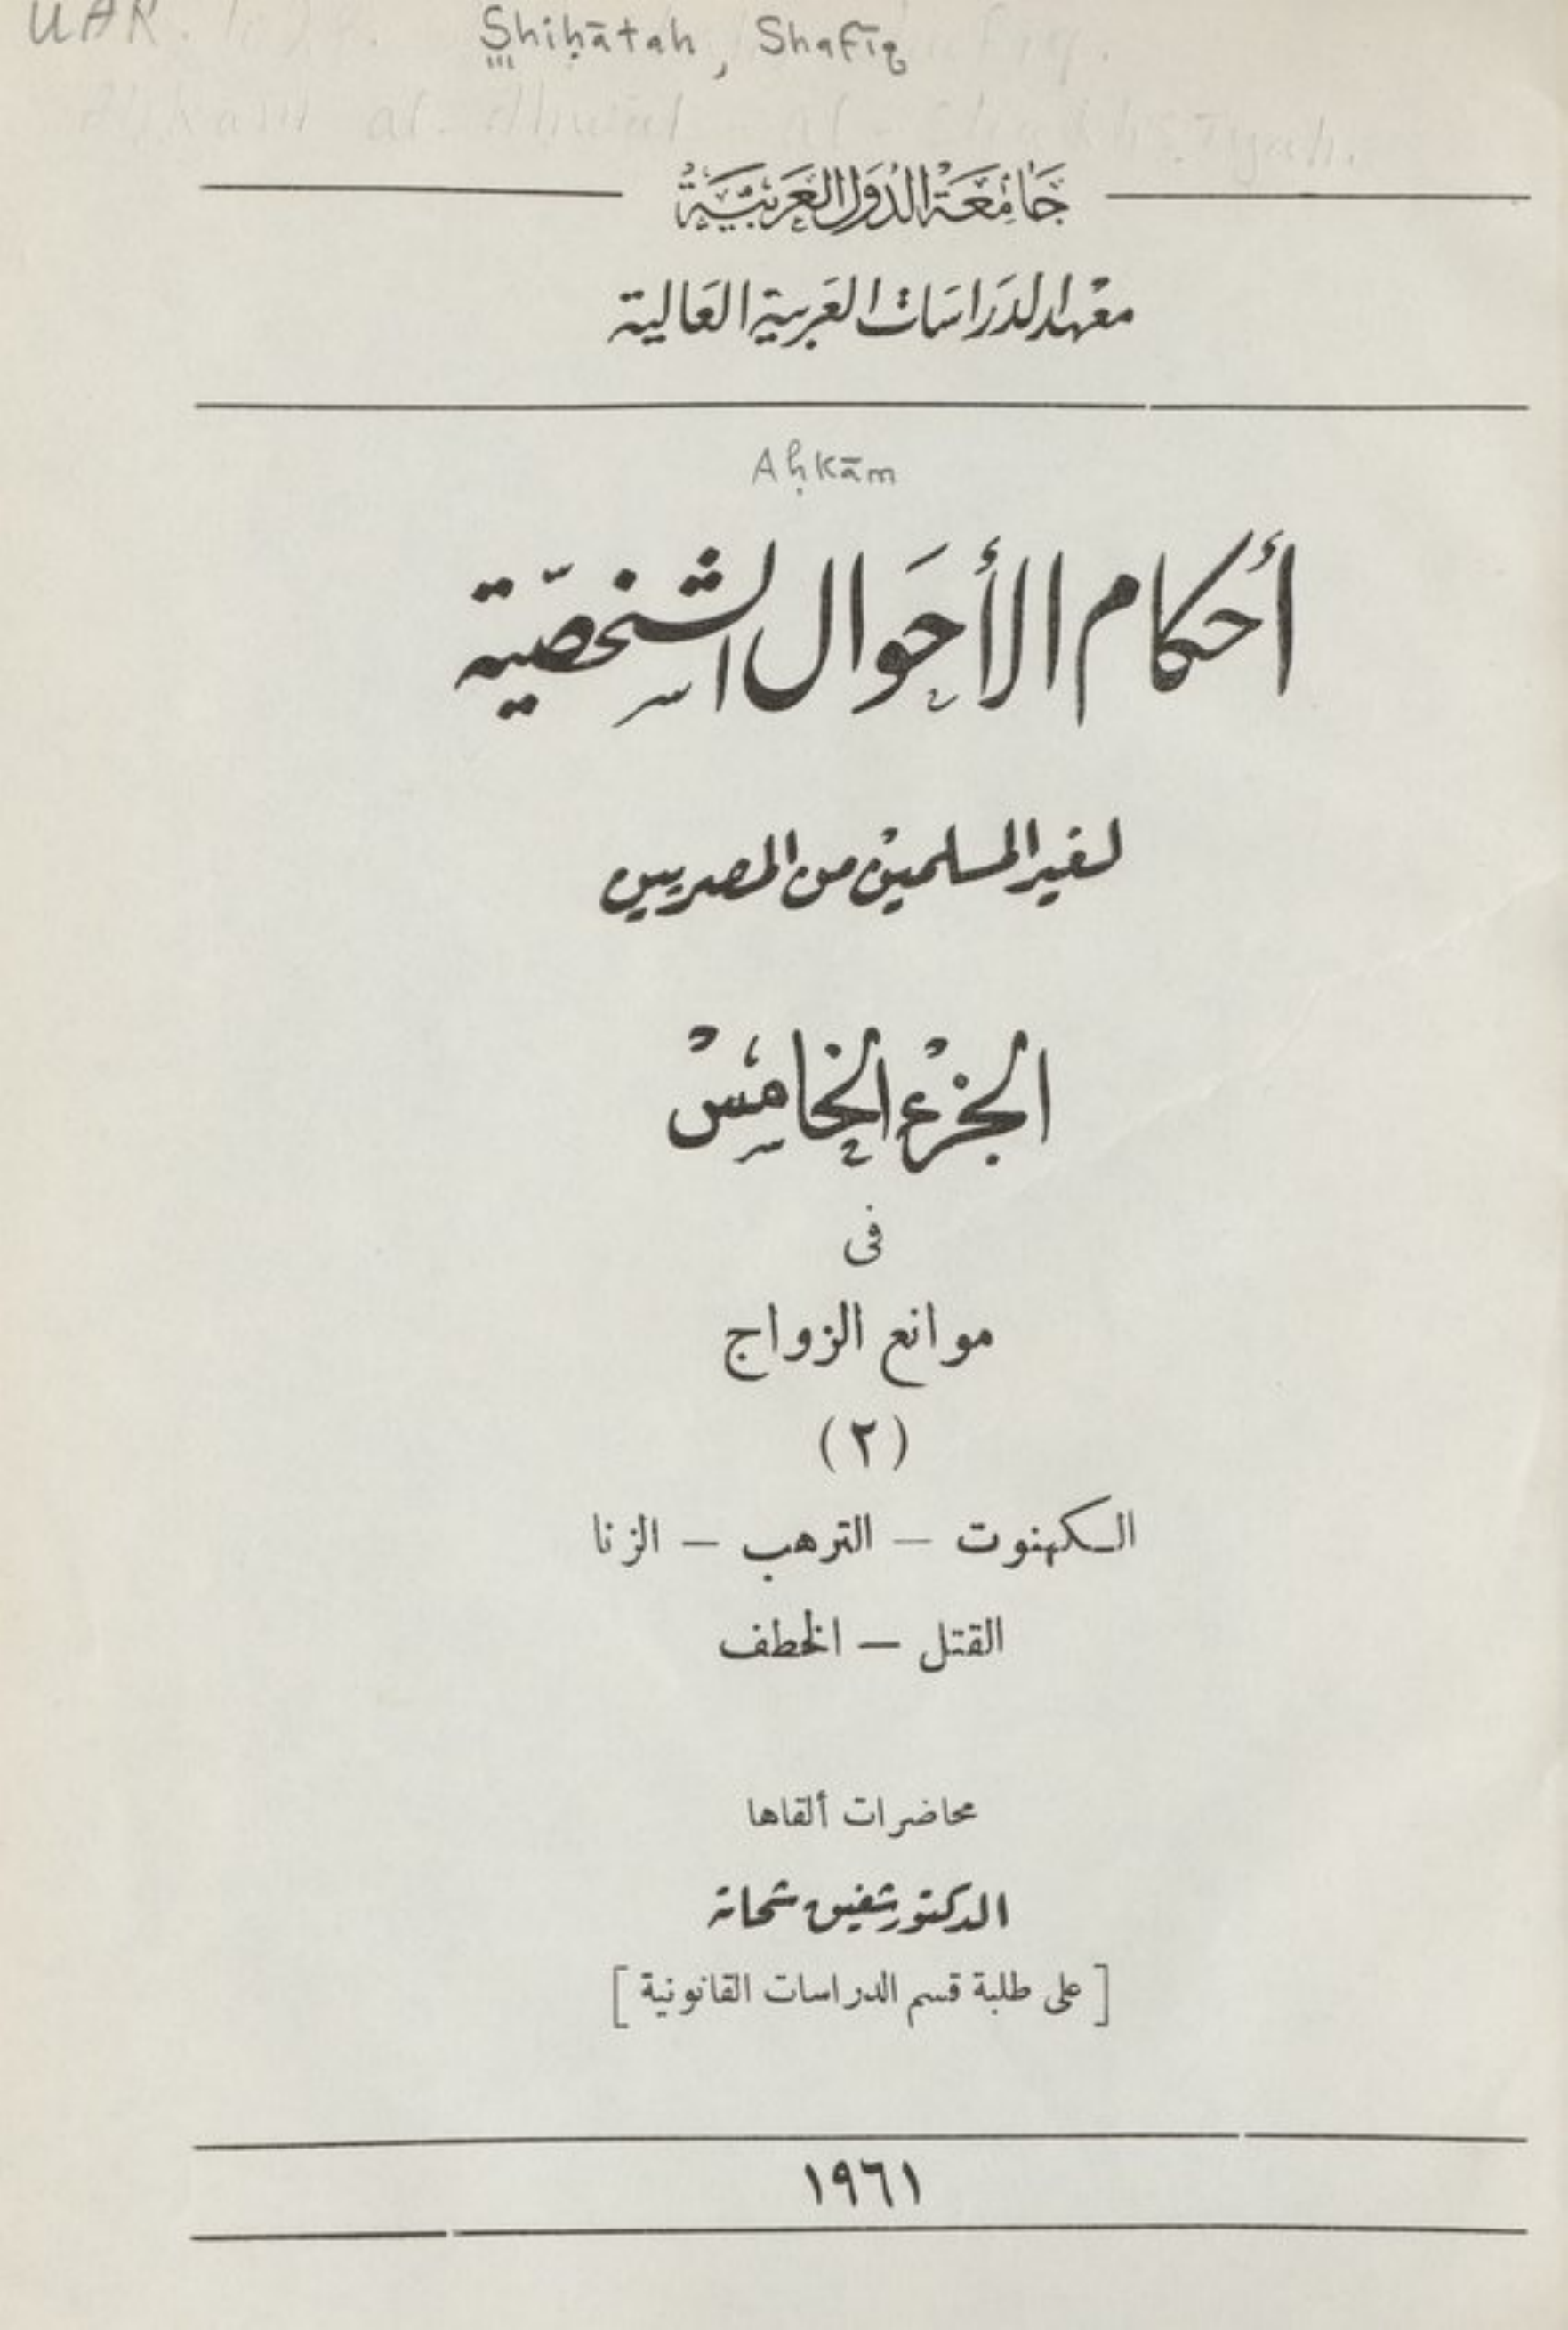 UAR. Shiḥātah, Shafīq
جَامِعَة الدُوَل العَرَبيَّة
معهد الدَرَاسَات العَربية العَالية
Aḥkām
أحكام الأحوَال الشخصيّة
لغير المسلمين من المصريين
الجزء الخامس
فى
موانع الزواج
(٢)
الكهنوت – الترهب – الزنا
القتل – الخطف
محاضرات ألقاها
الدكتور شفيق شحاتة
[على طلبة قسم الدراسات القانونية]
١٩٦١